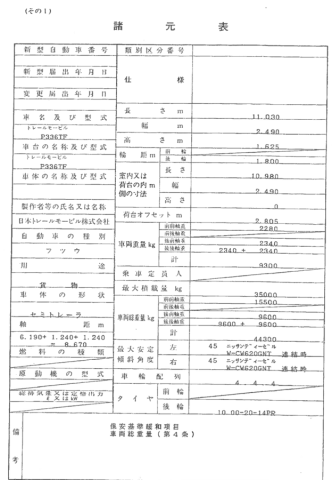 (その1)
諸元表
新型自動車番号
類別区分番号
新型届出年月日
仕様
変更届出年月日
長さm
11.030
車名及び型式
幅m
2.490
トレールモービル
P336TF
高さm
1.625
車台の名称及び型式
輪距m
前輪
後輪
1.800
トレールモービル
P336TF
室内又は荷台の内側の寸法
m
長さ
10.980
車体の名称及び型式
幅
2.490
高さ
0
製作者等の氏名又は名称
荷台オフセットm
2.605
日本トレールモービル株式会社
車両重量kg
前前軸重
2280
前後軸重
自動車の種別
後前軸重
2340
フツウ
後後軸重
2340 + 2340
計
9300
用途
乗車定員人
貨物
最大積載量kg
35000
車体の形状
車両総重量kg
前前軸重
15500
前後軸重
セミトレーラ
後前軸重
9600
軸距m
後後軸重
9600 + 9600
計
44300
6.190+ 1.240+ 1.240
= 8.670
最大安定傾斜角度
左
45 ニッサンディーゼル
W-CW620GNT 連結時
燃料の種類
右
45 ニッサンディーゼル
W-CW620GNT 連結時
原動機の型式
車輪配列
4 - 4 - 4
総排気量又は定格出力
ℓ又はkW
タイヤ
前輪
後輪
10.00-20-14PR
備考
保安基準緩和項目
車両総重量(第4条)